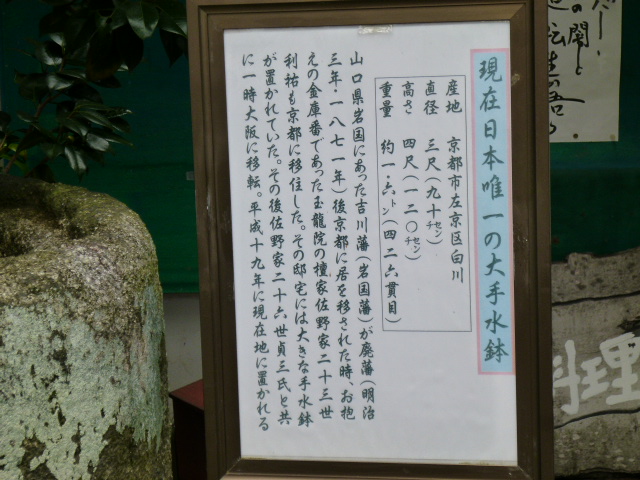 現在日本唯一の大手水鉢
産地 京都市左京区白川
直径 三尺(九十センチ)
高さ 四尺(一二〇センチ)
重量 約一・六トン(四二六貫目)
山口県岩国にあった吉川藩(岩国藩)が廃藩(明治
三年・一八七一年)後京都に居を移された時、お抱
えの金庫番であった玉龍院の檀家佐野家二十三世
利祐も京都に移住した。その邸宅には大きな手水鉢
が置かれていた。その後佐野家二十六世貞三氏と共
に一時大阪に移転。平成十九年に現在地に置かれる
料理